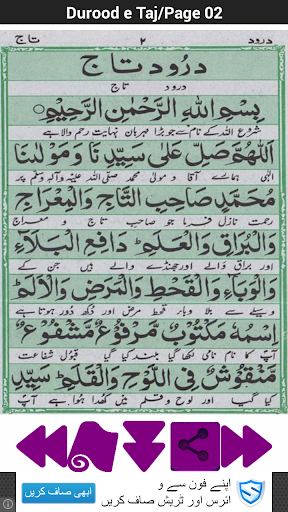 Durood e Taj/Page 02
تاج ۲ درود
دُرُود تاج
درود تاج
بِسْمِ اللهِ الرَّحْمٰنِ الرَّحِيْمِ
شروع اللہ کے نام سے جو بڑا مہربان نہایت رحم والا ہے
اَللّٰهُمَّ صَلِّ عَلٰى سَيِّدِنَا وَمَوْلٰنَا
الٰہی ہمارے آقا و مولیٰ محمد صلی اللہ علیہ وآلہ وسلم پر
مُحَمَّدٍ صَاحِبِ التَّاجِ وَالْمِعْرَاجِ
رحمت نازل فرما جو صاحب تاج و معراج
وَالْبُرَاقِ وَالْعَلَمِ دَافِعِ الْبَلَاءِ
اور براق والے اور جھنڈے والے ہیں جن کے
وَالْوَبَاءِ وَالْقَحْطِ وَالْمَرَضِ وَالْاَلَمِ
وسیلے سے بلا وبا قحط مرض اور دکھ دور ہوتا ہے
اِسْمُهٗ مَكْتُوْبٌ مَّرْفُوْعٌ مَّشْفُوْعٌ
آپ کا نام نامی لکھا گیا بلند کیا گیا قبول شفاعت
مَّنْقُوْشٌ فِى اللَّوْحِ وَالْقَلَمِ سَيِّدِ
کیا گیا اور لوح و قلم میں کھدا ہوا ہے آپ
اپنے فون سے و
ائرس اور ٹریش صاف کریں
ابھی صاف کریں